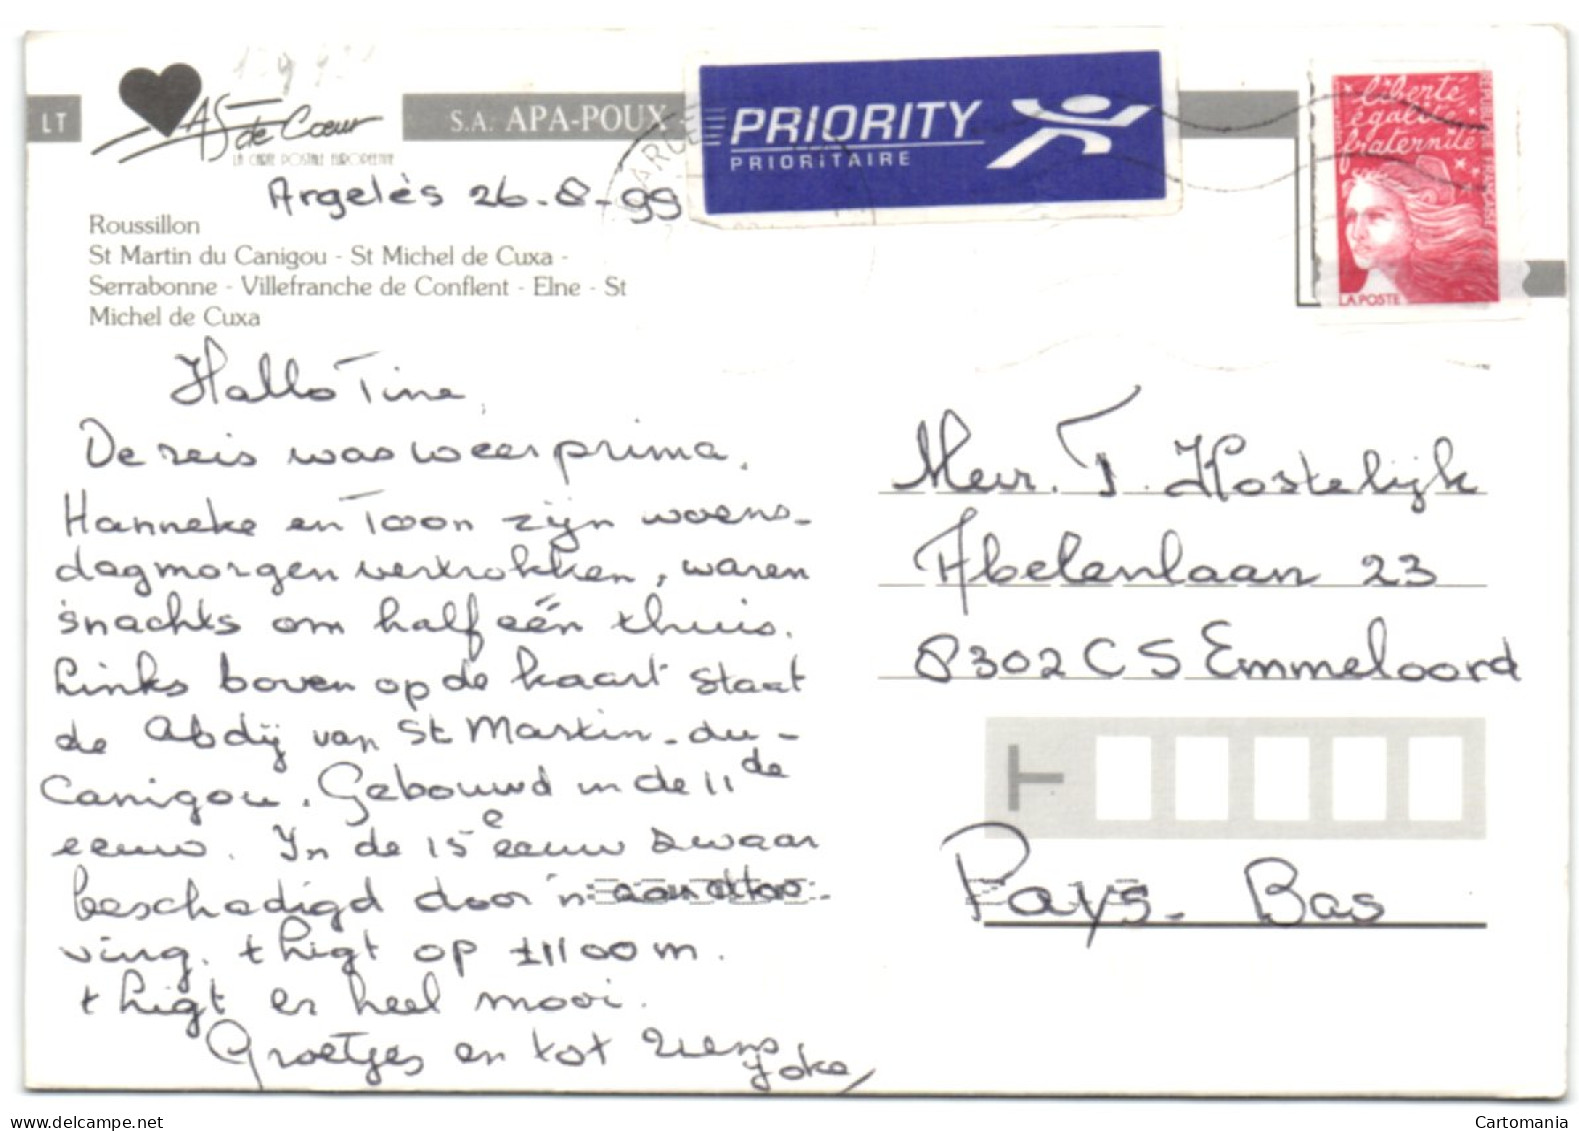 1-9 9
LT
AS de Cœur
LA CARTE POSTALE EUROPEENNE
S.A. APA-POUX -
PRIORITY
PRIORITAIRE
liberté
égalité
fraternité
REPUBLIQUE FRANÇAISE
LA POSTE
Argelès 26-8-99
Roussillon
St Martin du Canigou - St Michel de Cuxa -
Serrabonne - Villefranche de Conflent - Elne - St
Michel de Cuxa
Hallo Tine,
De reis was weer prima.
Hanneke en Toon zijn woens-
dagmorgen vertrokken, waren
'snachts om half één thuis.
Links boven op de kaart staat
de Abdij van St Martin-du-
Canigou. Gebouwd in de 11de
eeuw. In de 15e eeuw zwaar
beschadigd door 'n
ving. t ligt op ±1100 m.
t ligt er heel mooi.
Groetjes en tot ziens
Joke
Mevr. T. Hostelijk
Abelenlaan 23
8302 CS Emmeloord
T
Pays-Bas
Cartomania